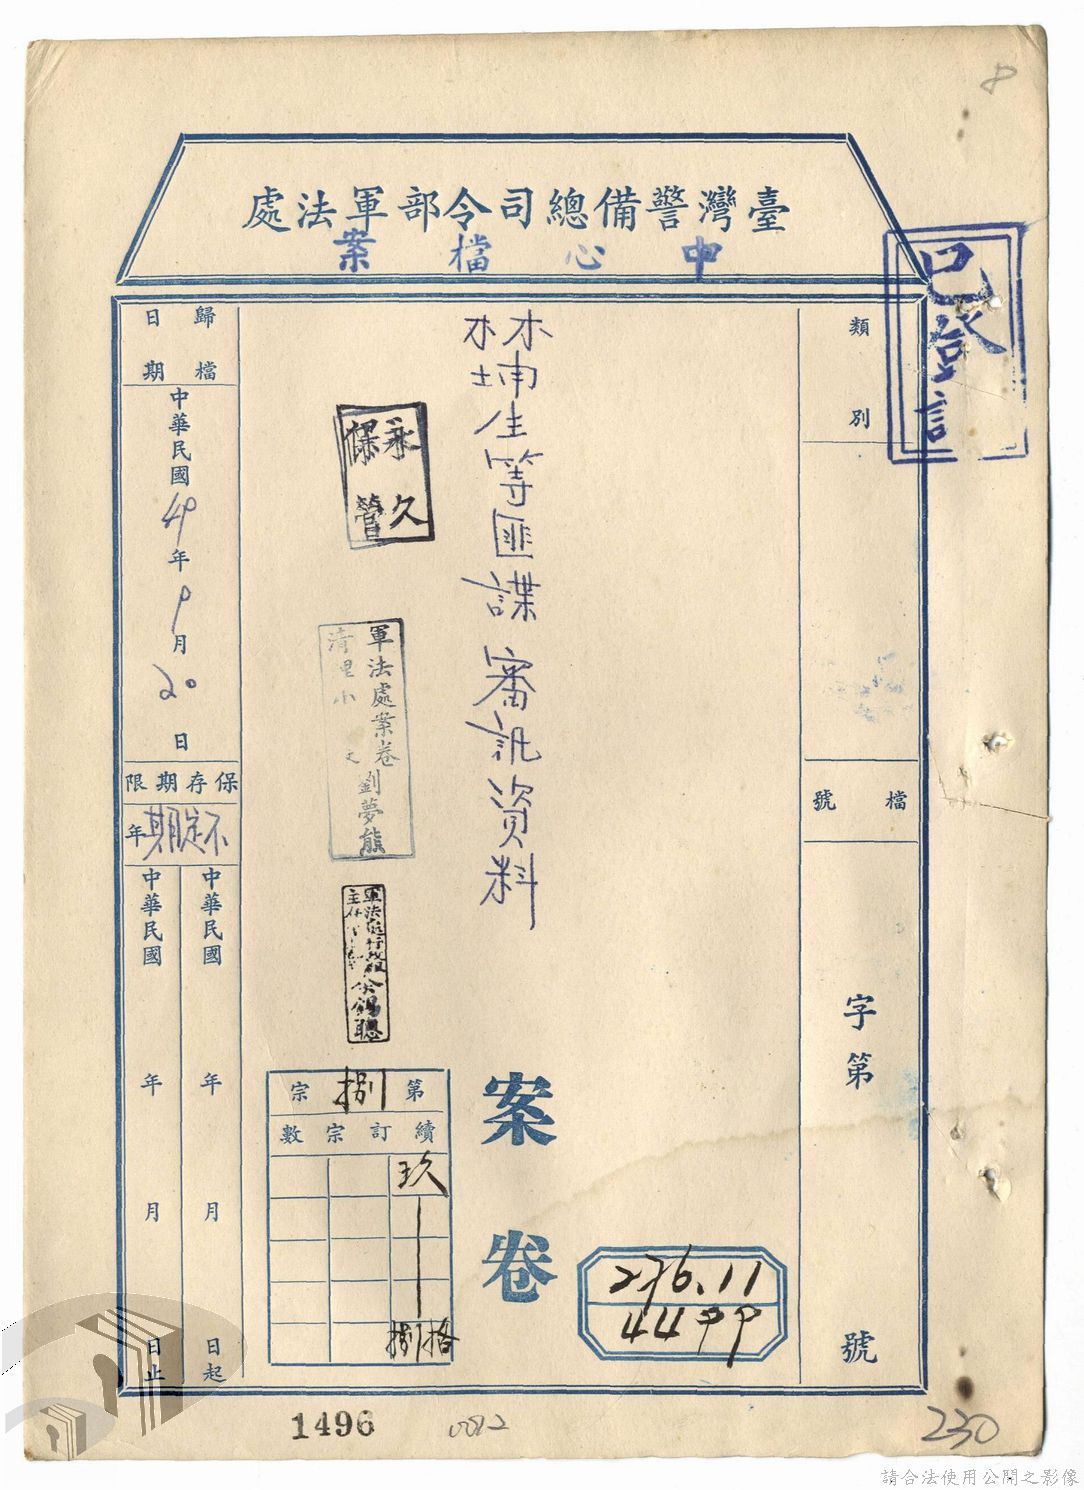 臺灣警備總司令部軍法處
中心檔案
已登記
類別
檔號
字第
號
林埔生等匪諜審訊資料
案卷
永久
保管
軍法處案卷
劉夢熊
軍法處行政組
第捌宗
續訂宗數
玖
捌拾
276.11
4499
歸檔
日期
中華民國49年9月20日
保存期限
不定期年
中華民國 年 月 日起
中華民國 年 月 日止
1496
0082
230
8
請合法使用公開之影像